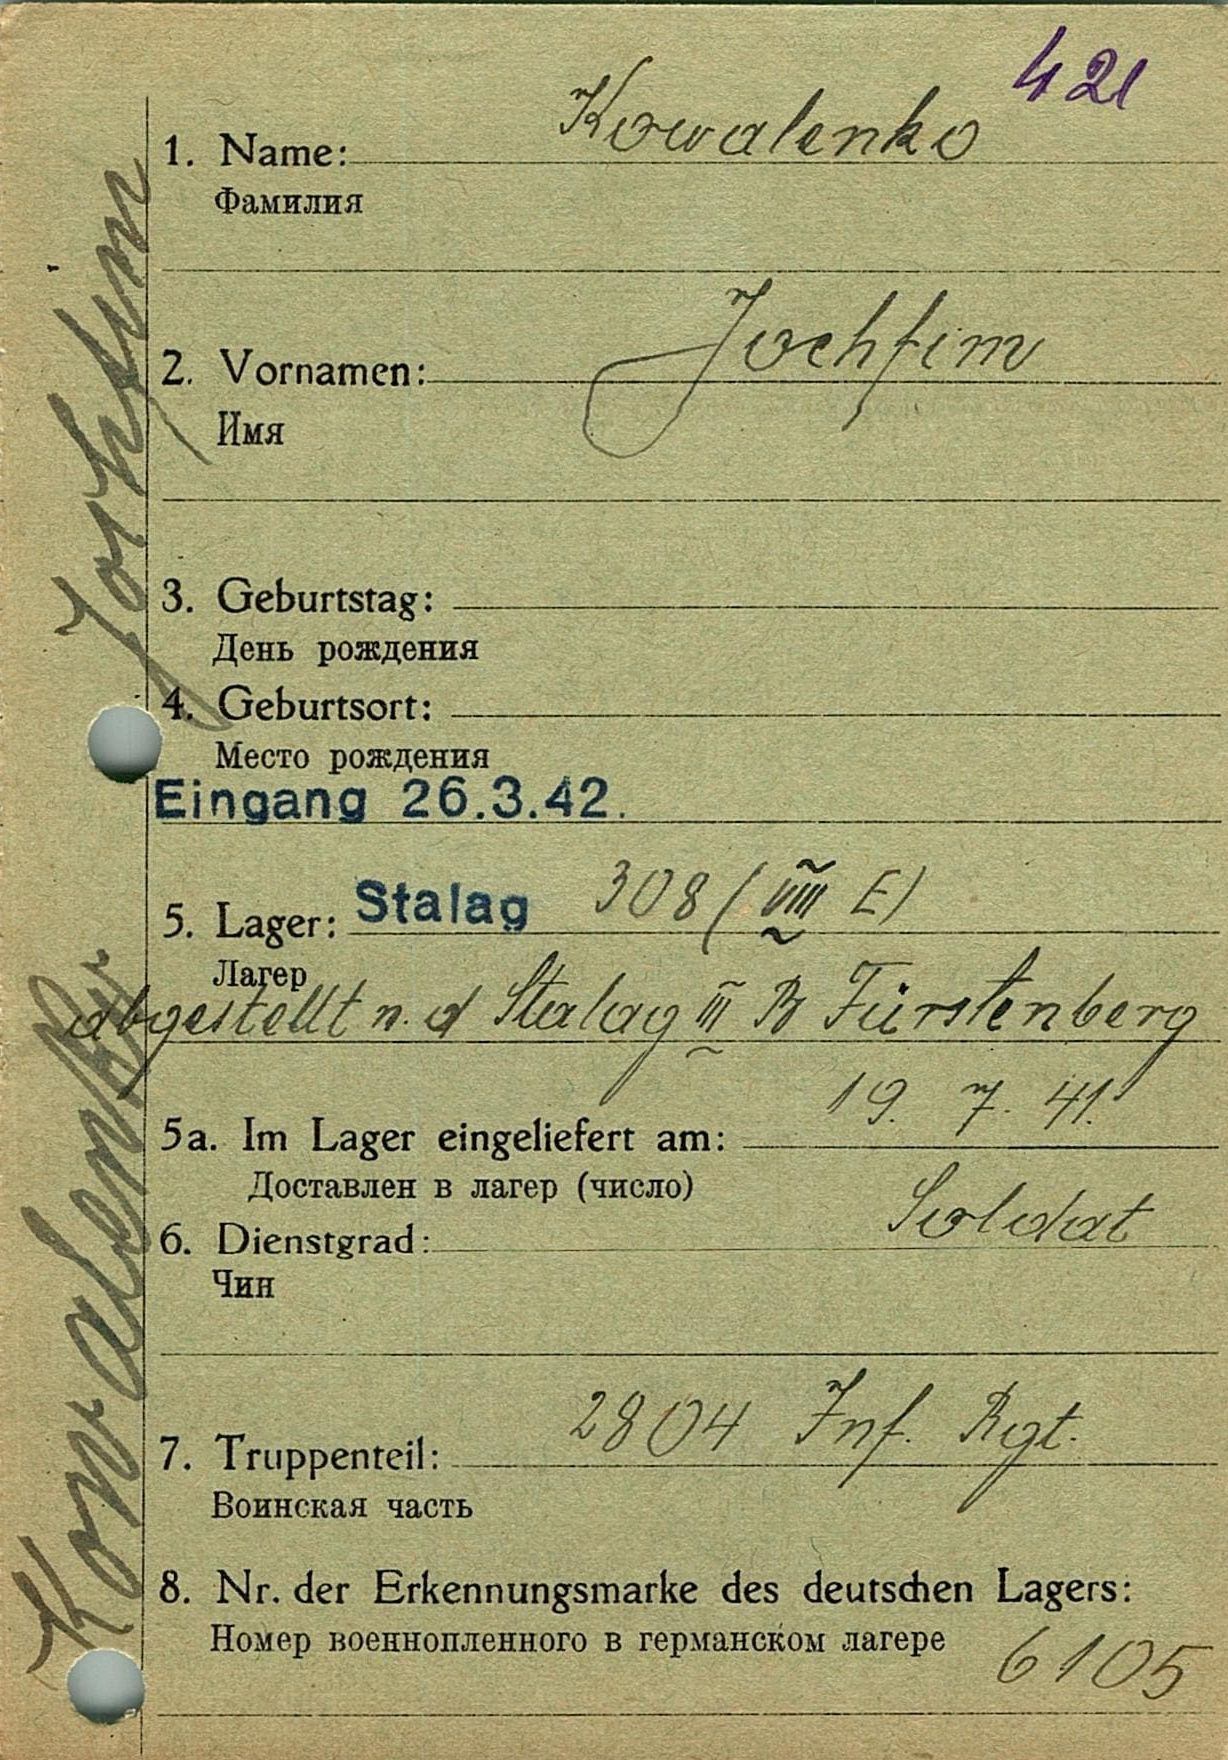 421
1. Name: Kowalenko
Фамилия
2. Vornamen: Jochfim
Имя
3. Geburtstag:
День рождения
4. Geburtsort:
Место рождения
Eingang 26.3.42.
5. Lager: Stalag 308 (VIII E)
Лагер
abgestellt n. d Stalag III B Fürstenberg
19. 7. 41.
5a. Im Lager eingeliefert am:
Доставлен в лагер (число)
6. Dienstgrad: Soldat
Чин
7. Truppenteil: 2804 Inf. Rgt.
Воинская часть
8. Nr. der Erkennungsmarke des deutschen Lagers:
Номер военнопленного в германском лагере 6105
Kowalenko Jochfim